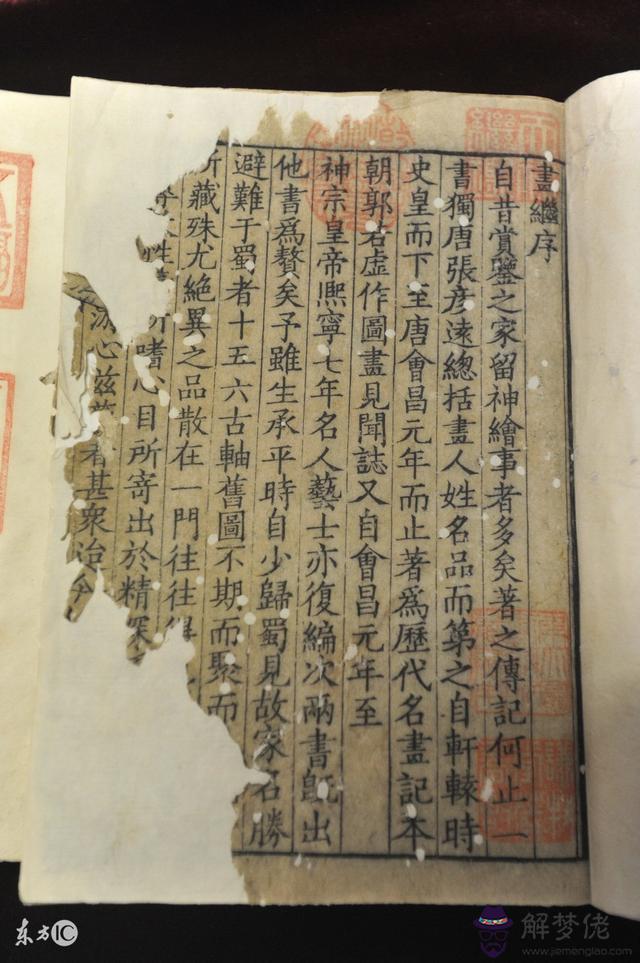 畫繼序
自昔賞鑒之家留神繪事者多矣著之傳記何止一
書獨唐張彥遠總括畫人姓名品而第之自軒轅時
史皇而下至唐會昌元年而止著爲歷代名畫記本
朝郭若虛作圖畫見聞誌又自會昌元年至
神宗皇帝熙寧七年名人藝士亦復編次兩書旣出
他書爲贅矣予雖生承平時自少歸蜀見故家名勝
避難于蜀者十五六古軸舊圖不期而聚而
所藏殊尤絕異之品散在一門往往得
性所嗜心目所寄出於精深
游心茲藝者甚衆迨今
东方IC
解梦佬
www.jiemenglao.com